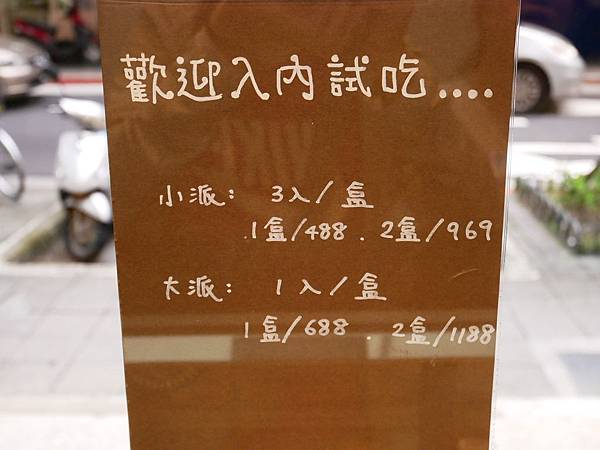 歡迎入內試吃....
小派: 3入/盒
1盒/488 . 2盒/969
大派: 1入/盒
1盒/688 . 2盒/1188